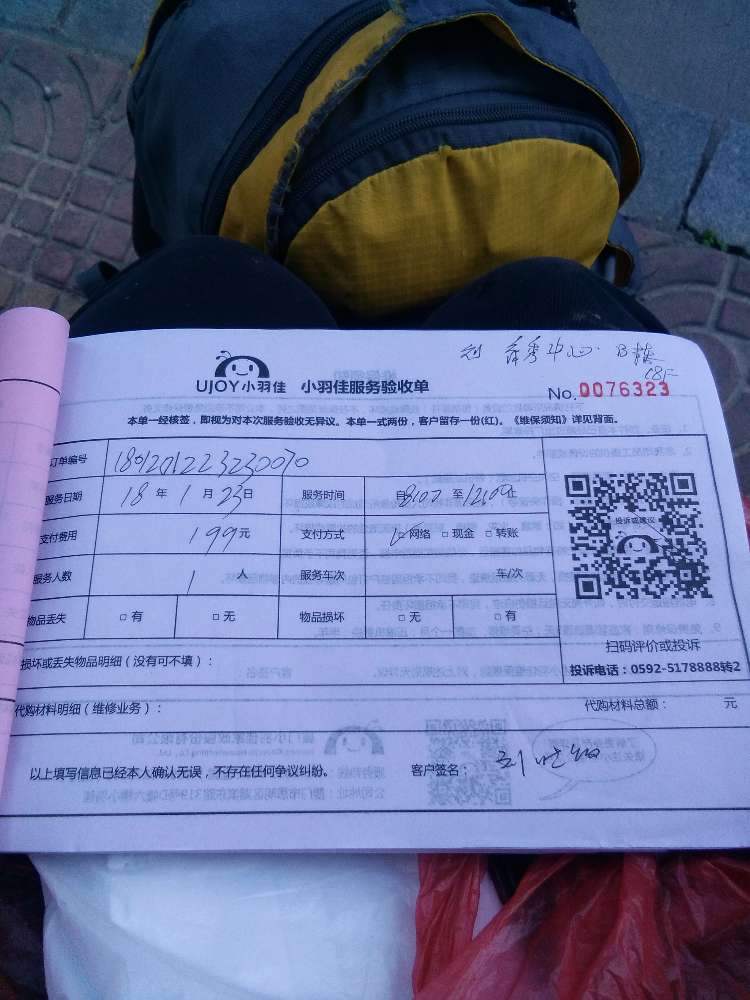 UJOY小羽佳 小羽佳服务验收单
B栋
No.0076323
本单一经核签，即视为对本次服务验收无异议。本单一式两份，客户留存一份(红)。《维保须知》详见背面。
订单编号
服务日期 18 年 1 月 23 日 服务时间 自 至 止
支付费用 199 元 支付方式 □网络 □现金 □转账
服务人数 1 人 服务车次 车/次
物品丢失 □有 □无 物品损坏 □无 □有
投诉或建议
扫码评价或投诉
投诉电话：0592-5178888转2
损坏或丢失物品明细（没有可不填）：
代购材料明细（维修业务）： 代购材料总额： 元
以上填写信息已经本人确认无误，不存在任何争议纠纷。 客户签名：